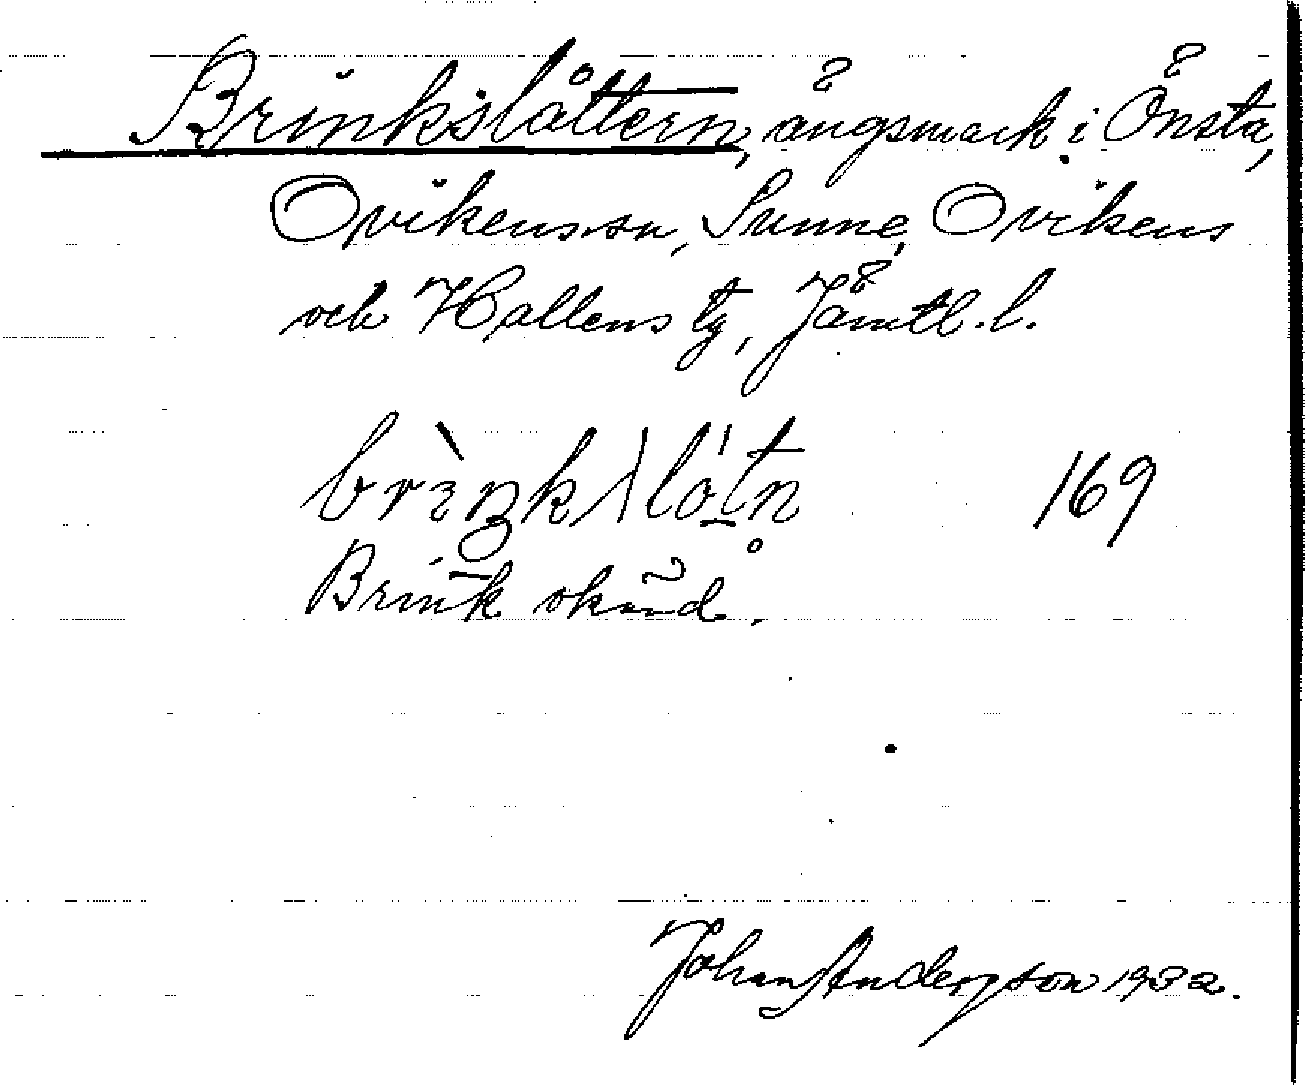 Brinkslåttern, ängsmark i Önsta,
Ovikens sn, Sunne, Ovikens
och Hallens tg, Jämtl. l.
169
Brink okänd.
Johan Anderson 1932.